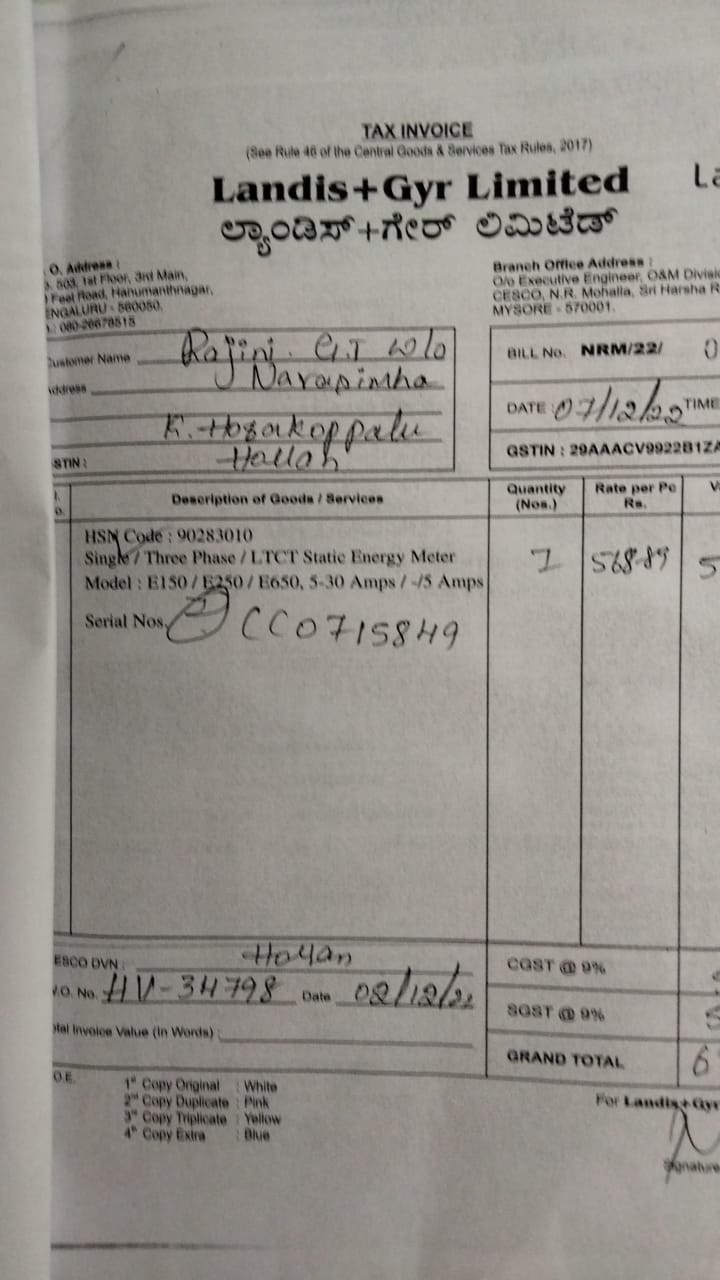 TAX INVOICE
(See Rule 46 of the Central Goods & Services Tax Rules, 2017)
Landis+Gyr Limited
La
ಲ್ಯಾಂಡಿಸ್+ಗೇರ್ ಲಿಮಿಟೆಡ್
. O. Address :
. 503, 1st Floor, 3rd Main,
Road, Hanumanthnagar,
ENGALURU - 560050.
: 080-26678515
Branch Office Address :
O/o Executive Engineer, O&M Divisio
CESCO, N.R. Mohalla, Sri Harsha R
MYSORE - 570001.
Customer Name Rajini. G.T W/o
Address Narasimha
K. Hosakoppalu
STIN : Hassan
BILL No. NRM/22/ 0
DATE : 07/12/22 TIME
GSTIN : 29AAACV9922B1ZA
Description of Goods / Services
Quantity (Nos.)
Rate per Pc Rs.
V
HSN Code : 90283010
Single / Three Phase / LTCT Static Energy Meter
Model : E150 / E250 / E650, 5-30 Amps / -/5 Amps
Serial Nos. CC0715849
1
568-89
5
ESCO DVN : Hassan
.O. No. HV-34798 Date 02/12/22
tal Invoice Value (In Words) :
CGST @ 9%
SGST @ 9%
GRAND TOTAL 6
O.E.
1st Copy Original : White
2nd Copy Duplicate : Pink
3rd Copy Triplicate : Yellow
4th Copy Extra : Blue
For Landis+Gyr
Signature